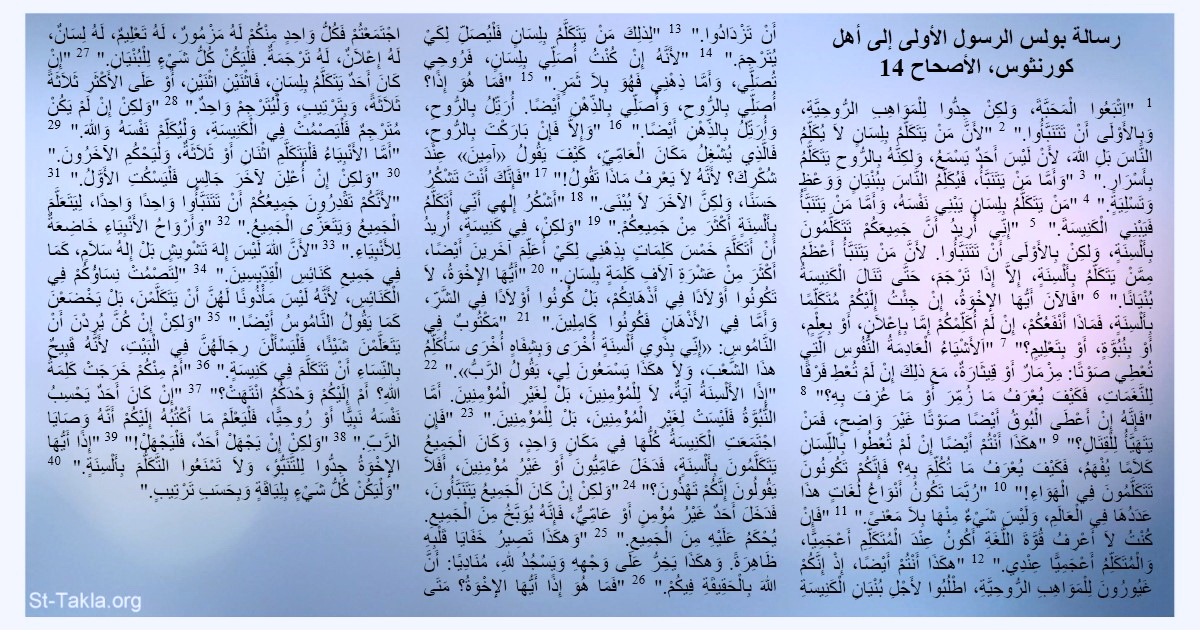 رسالة بولس الرسول الأولى إلى أهل
كورنثوس، الأصحاح 14
1 "اِتْبَعُوا الْمَحَبَّةَ، وَلكِنْ جِدُّوا لِلْمَوَاهِبِ الرُّوحِيَّةِ،
وَبِالأَوْلَى أَنْ تَتَنَبَّأُوا." 2 "لأَنَّ مَنْ يَتَكَلَّمُ بِلِسَانٍ لاَ يُكَلِّمُ
النَّاسَ بَلِ اللهَ، لأَنْ لَيْسَ أَحَدٌ يَسْمَعُ، وَلكِنَّهُ بِالرُّوحِ يَتَكَلَّمُ
بِأَسْرَارٍ." 3 "وَأَمَّا مَنْ يَتَنَبَّأُ، فَيُكَلِّمُ النَّاسَ بِبُنْيَانٍ وَوَعْظٍ
وَتَسْلِيَةٍ." 4 "مَنْ يَتَكَلَّمُ بِلِسَانٍ يَبْنِي نَفْسَهُ، وَأَمَّا مَنْ يَتَنَبَّأُ
فَيَبْنِي الْكَنِيسَةَ." 5 "إِنِّي أُرِيدُ أَنَّ جَمِيعَكُمْ تَتَكَلَّمُونَ
بِأَلْسِنَةٍ، وَلكِنْ بِالأَوْلَى أَنْ تَتَنَبَّأُوا. لأَنَّ مَنْ يَتَنَبَّأُ أَعْظَمُ
مِمَّنْ يَتَكَلَّمُ بِأَلْسِنَةٍ، إِلاَّ إِذَا تَرْجَمَ، حَتَّى تَنَالَ الْكَنِيسَةُ
بُنْيَانًا." 6 "فَالآنَ أَيُّهَا الإِخْوَةُ، إِنْ جِئْتُ إِلَيْكُمْ مُتَكَلِّمًا
بِأَلْسِنَةٍ، فَمَاذَا أَنْفَعُكُمْ، إِنْ لَمْ أُكَلِّمْكُمْ إِمَّا بِإِعْلاَنٍ، أَوْ بِعِلْمٍ،
أَوْ بِنُبُوَّةٍ، أَوْ بِتَعْلِيمٍ؟" 7 "اَلأَشْيَاءُ الْعَادِمَةُ النُّفُوسِ الَّتِي
تُعْطِي صَوْتًا: مِزْمَارٌ أَوْ قِيثَارَةٌ، مَعَ ذلِكَ إِنْ لَمْ تُعْطِ فَرْقًا
لِلنَّغَمَاتِ، فَكَيْفَ يُعْرَفُ مَا زُمِّرَ أَوْ مَا عُزِفَ بِهِ؟" 8
"فَإِنَّهُ إِنْ أَعْطَى الْبُوقُ أَيْضًا صَوْتًا غَيْرَ وَاضِحٍ، فَمَنْ
يَتَهَيَّأُ لِلْقِتَالِ؟" 9 "هكَذَا أَنْتُمْ أَيْضًا إِنْ لَمْ تُعْطُوا بِاللِّسَانِ
كَلاَمًا يُفْهَمُ، فَكَيْفَ يُعْرَفُ مَا تُكُلِّمَ بِهِ؟ فَإِنَّكُمْ تَكُونُونَ
تَتَكَلَّمُونَ فِي الْهَوَاءِ!" 10 "رُبَّمَا تَكُونُ أَنْوَاعُ لُغَاتٍ هذَا
عَدَدُهَا فِي الْعَالَمِ، وَلَيْسَ شَيْءٌ مِنْهَا بِلاَ مَعْنىً." 11 "فَإِنْ
كُنْتُ لاَ أَعْرِفُ قُوَّةَ اللُّغَةِ أَكُونُ عِنْدَ الْمُتَكَلِّمِ أَعْجَمِيًّا،
وَالْمُتَكَلِّمُ أَعْجَمِيًّا عِنْدِي." 12 "هكَذَا أَنْتُمْ أَيْضًا، إِذْ إِنَّكُمْ
غَيُورُونَ لِلْمَوَاهِبِ الرُّوحِيَّةِ، اطْلُبُوا لأَجْلِ بُنْيَانِ الْكَنِيسَةِ
أَنْ تَزْدَادُوا." 13 "لِذلِكَ مَنْ يَتَكَلَّمُ بِلِسَانٍ فَلْيُصَلِّ لِكَيْ
يُتَرْجِمَ." 14 "لأَنَّهُ إِنْ كُنْتُ أُصَلِّي بِلِسَانٍ، فَرُوحِي
تُصَلِّي، وَأَمَّا ذِهْنِي فَهُوَ بِلاَ ثَمَرٍ." 15 "فَمَا هُوَ إِذًا؟
أُصَلِّي بِالرُّوحِ، وَأُصَلِّي بِالذِّهْنِ أَيْضًا. أُرَتِّلُ بِالرُّوحِ،
وَأُرَتِّلُ بِالذِّهْنِ أَيْضًا." 16 "وَإِلاَّ فَإِنْ بَارَكْتَ بِالرُّوحِ،
فَالَّذِي يُشْغِلُ مَكَانَ الْعَامِّيِّ، كَيْفَ يَقُولُ «آمِينَ» عِنْدَ
شُكْرِكَ؟ لأَنَّهُ لاَ يَعْرِفُ مَاذَا تَقُولُ!" 17 "فَإِنَّكَ أَنْتَ تَشْكُرُ
حَسَنًا، وَلكِنَّ الآخَرَ لاَ يُبْنَى." 18 "أَشْكُرُ إِلهِي أَنِّي أَتَكَلَّمُ
بِأَلْسِنَةٍ أَكْثَرَ مِنْ جَمِيعِكُمْ." 19 "وَلكِنْ، فِي كَنِيسَةٍ، أُرِيدُ
أَنْ أَتَكَلَّمَ خَمْسَ كَلِمَاتٍ بِذِهْنِي لِكَيْ أُعَلِّمَ آخَرِينَ أَيْضًا،
أَكْثَرَ مِنْ عَشْرَةِ آلاَفِ كَلِمَةٍ بِلِسَانٍ." 20 "أَيُّهَا الإِخْوَةُ، لاَ
تَكُونُوا أَوْلاَدًا فِي أَذْهَانِكُمْ، بَلْ كُونُوا أَوْلاَدًا فِي الشَّرِّ،
وَأَمَّا فِي الأَذْهَانِ فَكُونُوا كَامِلِينَ." 21 "مَكْتُوبٌ فِي
النَّامُوسِ: «إِنِّي بِذَوِي أَلْسِنَةٍ أُخْرَى وَبِشِفَاهٍ أُخْرَى سَأُكَلِّمُ
هذَا الشَّعْبَ، وَلاَ هكَذَا يَسْمَعُونَ لِي، يَقُولُ الرَّبُّ»." 22
"إِذًا الأَلْسِنَةُ آيَةٌ، لاَ لِلْمُؤْمِنِينَ، بَلْ لِغَيْرِ الْمُؤْمِنِينَ. أَمَّا
النُّبُوَّةُ فَلَيْسَتْ لِغَيْرِ الْمُؤْمِنِينَ، بَلْ لِلْمُؤْمِنِينَ." 23 "فَإِنِ
اجْتَمَعَتِ الْكَنِيسَةُ كُلُّهَا فِي مَكَانٍ وَاحِدٍ، وَكَانَ الْجَمِيعُ
يَتَكَلَّمُونَ بِأَلْسِنَةٍ، فَدَخَلَ عَامِّيُّونَ أَوْ غَيْرُ مُؤْمِنِينَ، أَفَلاَ
يَقُولُونَ إِنَّكُمْ تَهْذُونَ؟" 24 "وَلكِنْ إِنْ كَانَ الْجَمِيعُ يَتَنَبَّأُونَ،
فَدَخَلَ أَحَدٌ غَيْرُ مُؤْمِنٍ أَوْ عَامِّيٌّ، فَإِنَّهُ يُوَبَّخُ مِنَ الْجَمِيعِ.
يُحْكَمُ عَلَيْهِ مِنَ الْجَمِيعِ." 25 "وَهكَذَا تَصِيرُ خَفَايَا قَلْبِهِ
ظَاهِرَةً. وَهكَذَا يَخِرُّ عَلَى وَجْهِهِ وَيَسْجُدُ للهِ، مُنَادِيًا: أَنَّ
اللهَ بِالْحَقِيقَةِ فِيكُمْ." 26 "فَمَا هُوَ إِذًا أَيُّهَا الإِخْوَةُ؟ مَتَى
اجْتَمَعْتُمْ فَكُلُّ وَاحِدٍ مِنْكُمْ لَهُ مَزْمُورٌ، لَهُ تَعْلِيمٌ، لَهُ لِسَانٌ،
لَهُ إِعْلاَنٌ، لَهُ تَرْجَمَةٌ. فَلْيَكُنْ كُلُّ شَيْءٍ لِلْبُنْيَانِ." 27 "إِنْ
كَانَ أَحَدٌ يَتَكَلَّمُ بِلِسَانٍ، فَاثْنَيْنِ اثْنَيْنِ، أَوْ عَلَى الأَكْثَرِ ثَلاَثَةً
ثَلاَثَةً، وَبِتَرْتِيبٍ، وَلْيُتَرْجِمْ وَاحِدٌ." 28 "وَلكِنْ إِنْ لَمْ يَكُنْ
مُتَرْجِمٌ فَلْيَصْمُتْ فِي الْكَنِيسَةِ، وَلْيُكَلِّمْ نَفْسَهُ وَاللهَ." 29
"أَمَّا الأَنْبِيَاءُ فَلْيَتَكَلَّمِ اثْنَانِ أَوْ ثَلاَثَةٌ، وَلْيَحْكُمِ الآخَرُونَ."
30 "وَلكِنْ إِنْ أُعْلِنَ لآخَرَ جَالِسٍ فَلْيَسْكُتِ الأَوَّلُ." 31
"لأَنَّكُمْ تَقْدِرُونَ جَمِيعُكُمْ أَنْ تَتَنَبَّأُوا وَاحِدًا وَاحِدًا، لِيَتَعَلَّمَ
الْجَمِيعُ وَيَتَعَزَّى الْجَمِيعُ." 32 "وَأَرْوَاحُ الأَنْبِيَاءِ خَاضِعَةٌ
لِلأَنْبِيَاءِ." 33 "لأَنَّ اللهَ لَيْسَ إِلهَ تَشْوِيشٍ بَلْ إِلهُ سَلاَمٍ، كَمَا
فِي جَمِيعِ كَنَائِسِ الْقِدِّيسِينَ." 34 "لِتَصْمُتْ نِسَاؤُكُمْ فِي
الْكَنَائِسِ، لأَنَّهُ لَيْسَ مَأْذُونًا لَهُنَّ أَنْ يَتَكَلَّمْنَ، بَلْ يَخْضَعْنَ
كَمَا يَقُولُ النَّامُوسُ أَيْضًا." 35 "وَلكِنْ إِنْ كُنَّ يُرِدْنَ أَنْ
يَتَعَلَّمْنَ شَيْئًا، فَلْيَسْأَلْنَ رِجَالَهُنَّ فِي الْبَيْتِ، لأَنَّهُ قَبِيحٌ
بِالنِّسَاءِ أَنْ تَتَكَلَّمَ فِي كَنِيسَةٍ." 36 "أَمْ مِنْكُمْ خَرَجَتْ كَلِمَةُ
اللهِ؟ أَمْ إِلَيْكُمْ وَحْدَكُمُ انْتَهَتْ؟" 37 "إِنْ كَانَ أَحَدٌ يَحْسِبُ
نَفْسَهُ نَبِيًّا أَوْ رُوحِيًّا، فَلْيَعْلَمْ مَا أَكْتُبُهُ إِلَيْكُمْ أَنَّهُ وَصَايَا
الرَّبِّ." 38 "وَلكِنْ إِنْ يَجْهَلْ أَحَدٌ، فَلْيَجْهَلْ!" 39 "إِذًا أَيُّهَا
الإِخْوَةُ جِدُّوا لِلتَّنَبُّؤِ، وَلاَ تَمْنَعُوا التَّكَلُّمَ بِأَلْسِنَةٍ." 40
"وَلْيَكُنْ كُلُّ شَيْءٍ بِلِيَاقَةٍ وَبِحَسَبِ تَرْتِيبٍ."
St-Takla.org